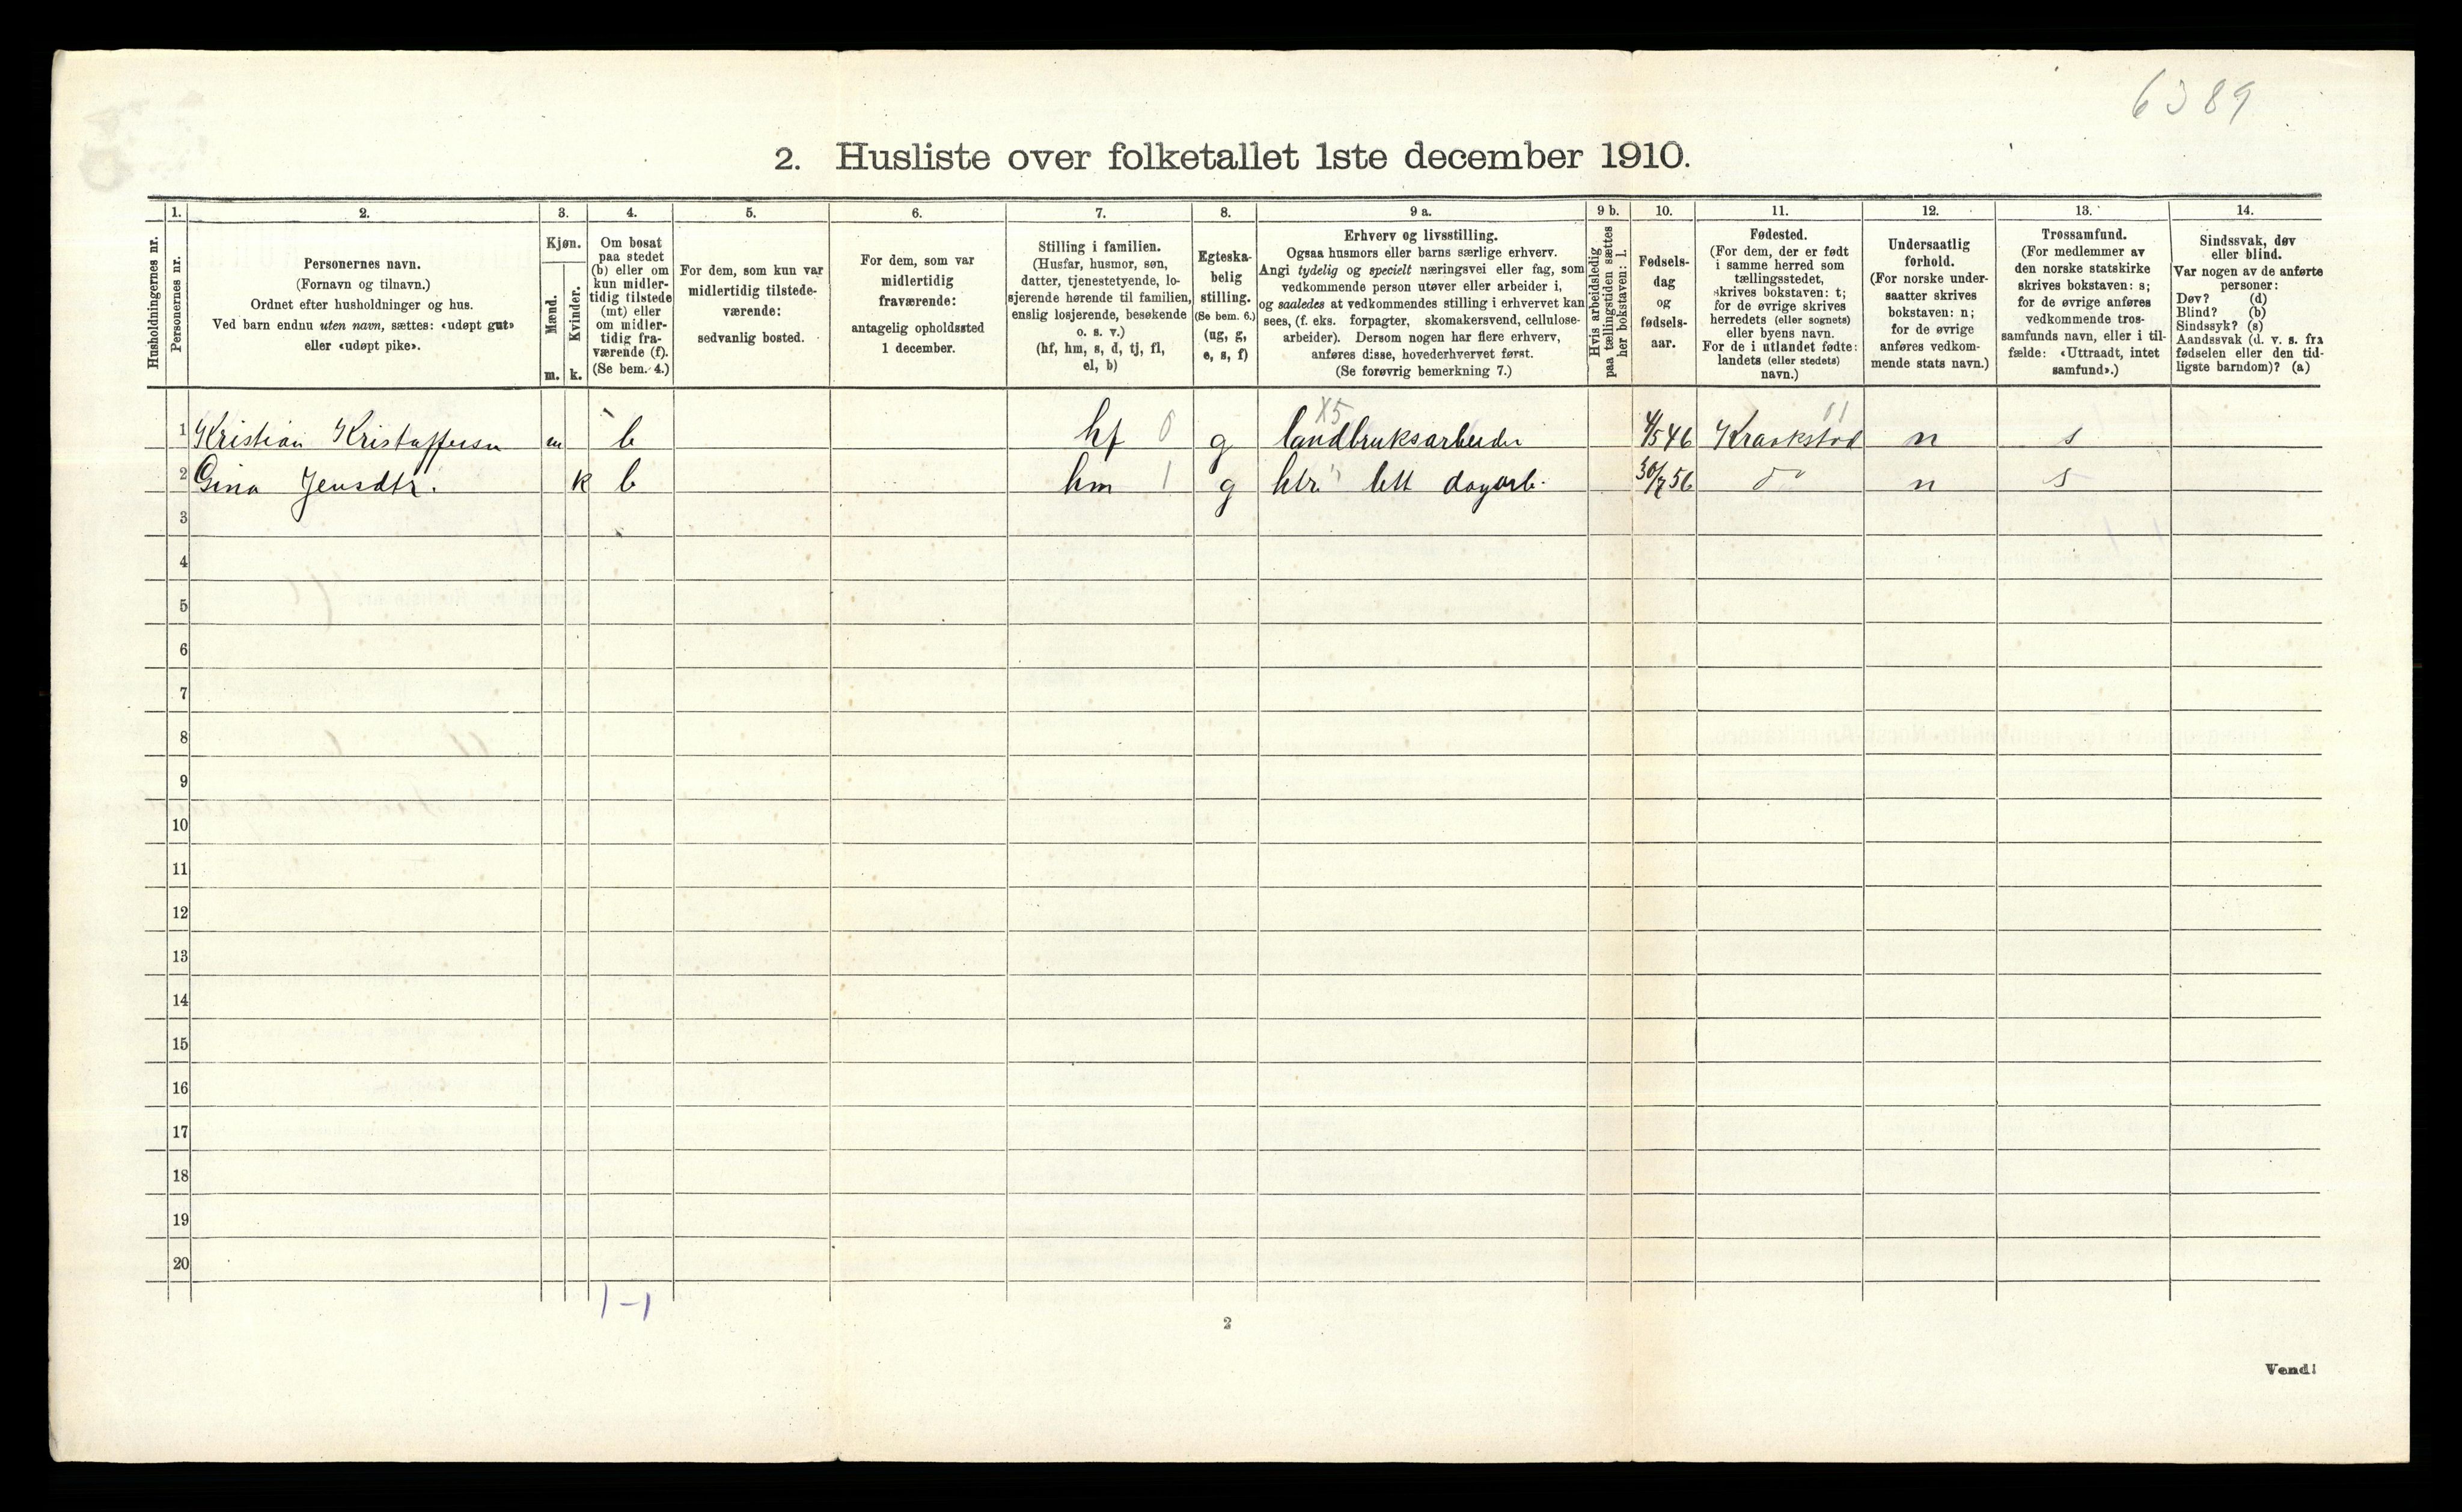 6389
2. Husliste over folketallet 1ste december 1910.
1. 2. 3. 4. 5. 6. 7. 8. 9 a. 9 b. 10. 11. 12. 13. 14.
Husholdningernes nr.
Personernes nr.
Personernes navn.
(Fornavn og tilnavn.)
Ordnet efter husholdninger og hus.
Ved barn endnu uten navn, sættes: «udøpt gut»
eller «udøpt pike».
Kjøn.
Mænd.
m.
Kvinder.
k.
Om bosat
paa stedet
(b) eller om
kun midler-
tidig tilstede
(mt) eller
om midler-
tidig fra-
værende (f).
(Se bem. 4.)
For dem, som kun var
midlertidig tilstede-
værende:
sedvanlig bosted.
For dem, som var
midlertidig
fraværende:
antagelig opholdssted
1 december.
Stilling i familien.
(Husfar, husmor, søn,
datter, tjenestetyende, lo-
sjerende hørende til familien,
enslig losjerende, besøkende
o. s. v.)
(hf, hm, s, d, tj, fl,
el, b)
Egteska-
belig
stilling.
(Se bem. 6.)
(ug, g,
e, s, f)
Erhverv og livsstilling.
Ogsaa husmors eller barns særlige erhverv.
Angi tydelig og specielt næringsvei eller fag, som
vedkommende person utøver eller arbeider i,
og saaledes at vedkommendes stilling i erhvervet kan
sees, (f. eks. forpagter, skomakersvend, cellulose-
arbeider). Dersom nogen har flere erhverv,
anføres disse, hovederhvervet først.
(Se forøvrig bemerkning 7.)
Hvis arbeidsledig
paa tællingstiden sættes
her bokstaven: l.
Fødsels-
dag
og
fødsels-
aar.
Fødested.
(For dem, der er født
i samme herred som
tællingsstedet,
skrives bokstaven: t;
for de øvrige skrives
herredets (eller sognets)
eller byens navn.
For de i utlandet fødte:
landets (eller stedets)
navn.)
Undersaatlig
forhold.
(For norske under-
saatter skrives
bokstaven: n;
for de øvrige
anføres vedkom-
mende stats navn.)
Trossamfund.
(For medlemmer av
den norske statskirke
skrives bokstaven: s;
for de øvrige anføres
vedkommende tros-
samfunds navn, eller i til-
fælde: «Uttraadt, intet
samfund».)
Sindssvak, døv
eller blind.
Var nogen av de anførte
personer:
Døv? (d)
Blind? (b)
Sindssyk? (s)
Aandssvak (d. v. s. fra
fødselen eller den tid-
ligste barndom)? (a)
X5 01
1 Kristian Kristoffersn m b hf 0 g landbruksarbeider 4/5 46 Kraakstad n s
2 Gina Jensdtr. k b hm 1 g lett dagarb. 30/7 56 do n s
3
4
5
6
7
8
9
10
11
12
13
14
15
16
17
18
19
20
1-1
2
Vend!